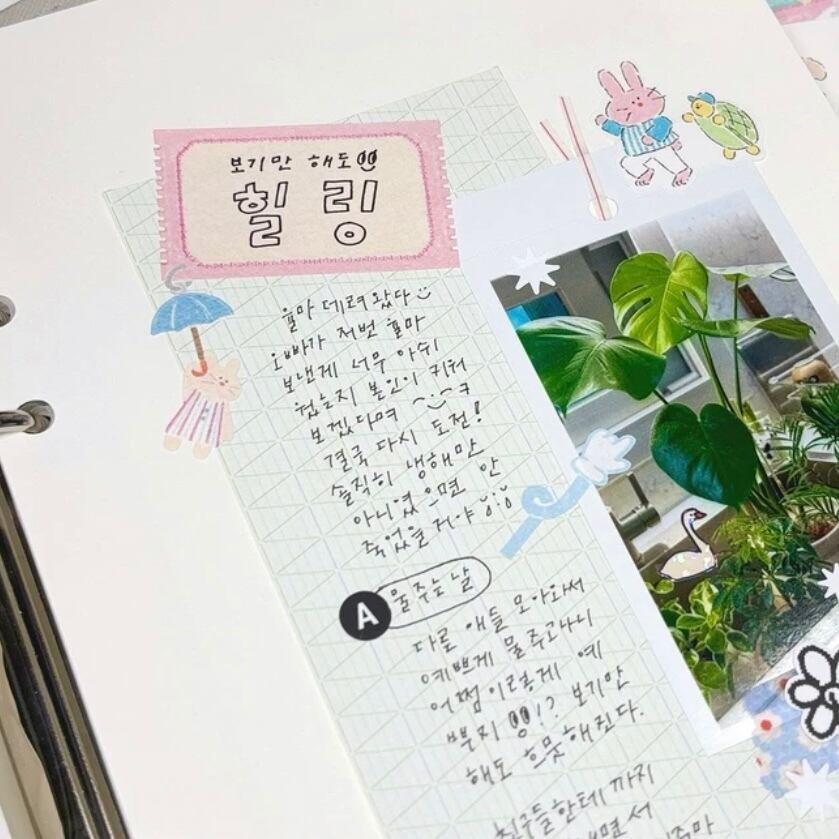 보기만 해도
힐링
율마 데려왔다
오빠가 저번 율마
보낸게 너무 아쉬
웠는지 본인이 키워
보겠다며 ㅋ
결국 다시 도전!
솔직히 냉해만
아니였으면 안
죽었을거야
A 물주는 날
다른 애들 모아와서
예쁘게 물주고나니
어쩜 이렇게 예
쁘지!? 보기만
해도 흐뭇해진다.
친구들한테 까지